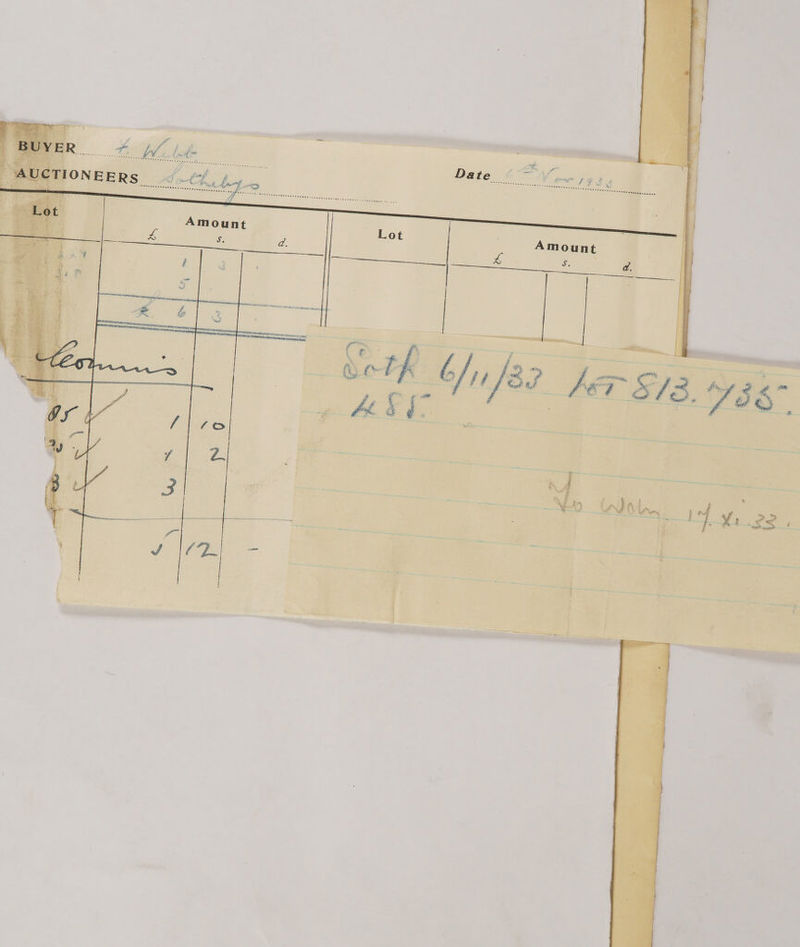 BUYER
AUCTIONEERS Sothebys
Date 6th Nov 1933
Lot Amount Lot Amount
£ s. d. £ s. d.
1 3
5
£ 6 3
Soth 6/11/33 LOT 813. 735.
485.
1 10
1 2
3
To Wohn. 17. XI. 33.
5 12 -